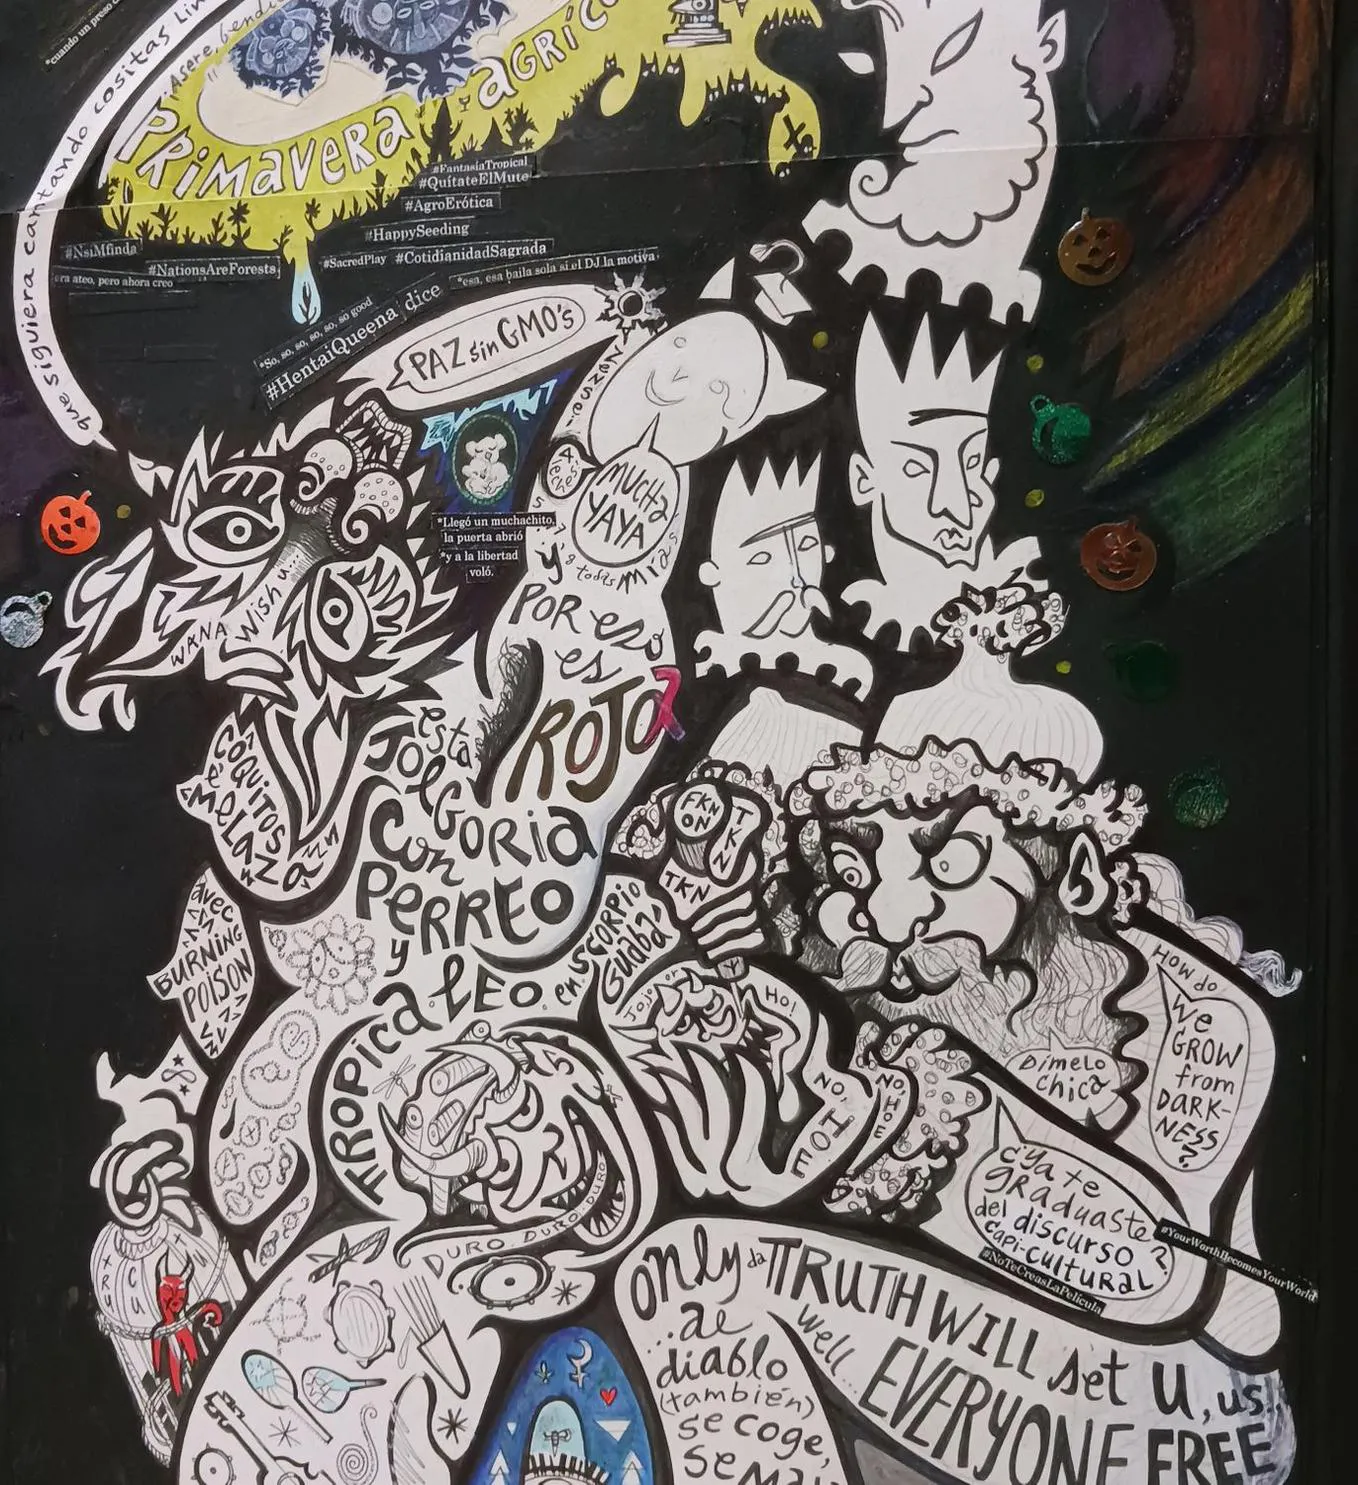 *cuando un preso
que siguiera cantando cositas lin
"Asere, bendi
PRiMAVERA
Y
aGRíCo
#FantasíaTropical
#QuítateElMute
#AgroErótica
#HappySeeding
#SacredPlay #CotidianidadSagrada
#NsiMfinda
#NationsAreForests
era ateo, pero ahora creo
*esa, esa baila sola si el DJ la motiva
*So, so, so, so, so good
#HentaiQueena dice
PAZ sin GMO's
MUCHA
YAYA
*Llegó un muchachito,
la puerta abrió
*y a la libertad
voló.
y todas miras
y
POR eso
es
ROJO
WANA Wish u...
esta
JOLGORIA
Con
PERREO
y
TROPicaLEO
en SCORPIO
Guaba'
COQUITOS
é MELAZa
avec
BURNING
POISON
FKN
ON
TKN
TKN
Jojo
or
HO!
NO, HOE
NO, HOE
DURO. DURO. DURO
HOW do
We
GROW
from
DARK-
NESS
?
Dímelo
chica
¿Ya te
graduaste
del discurso
capi-cultural?
#NoTeCreasLaPelícula
#YourWorthBecomesYourWorld
only da TRUTH WILL set U, us!,
well.. EVERYONE FREE
..al
diablo
(también)
se coge,